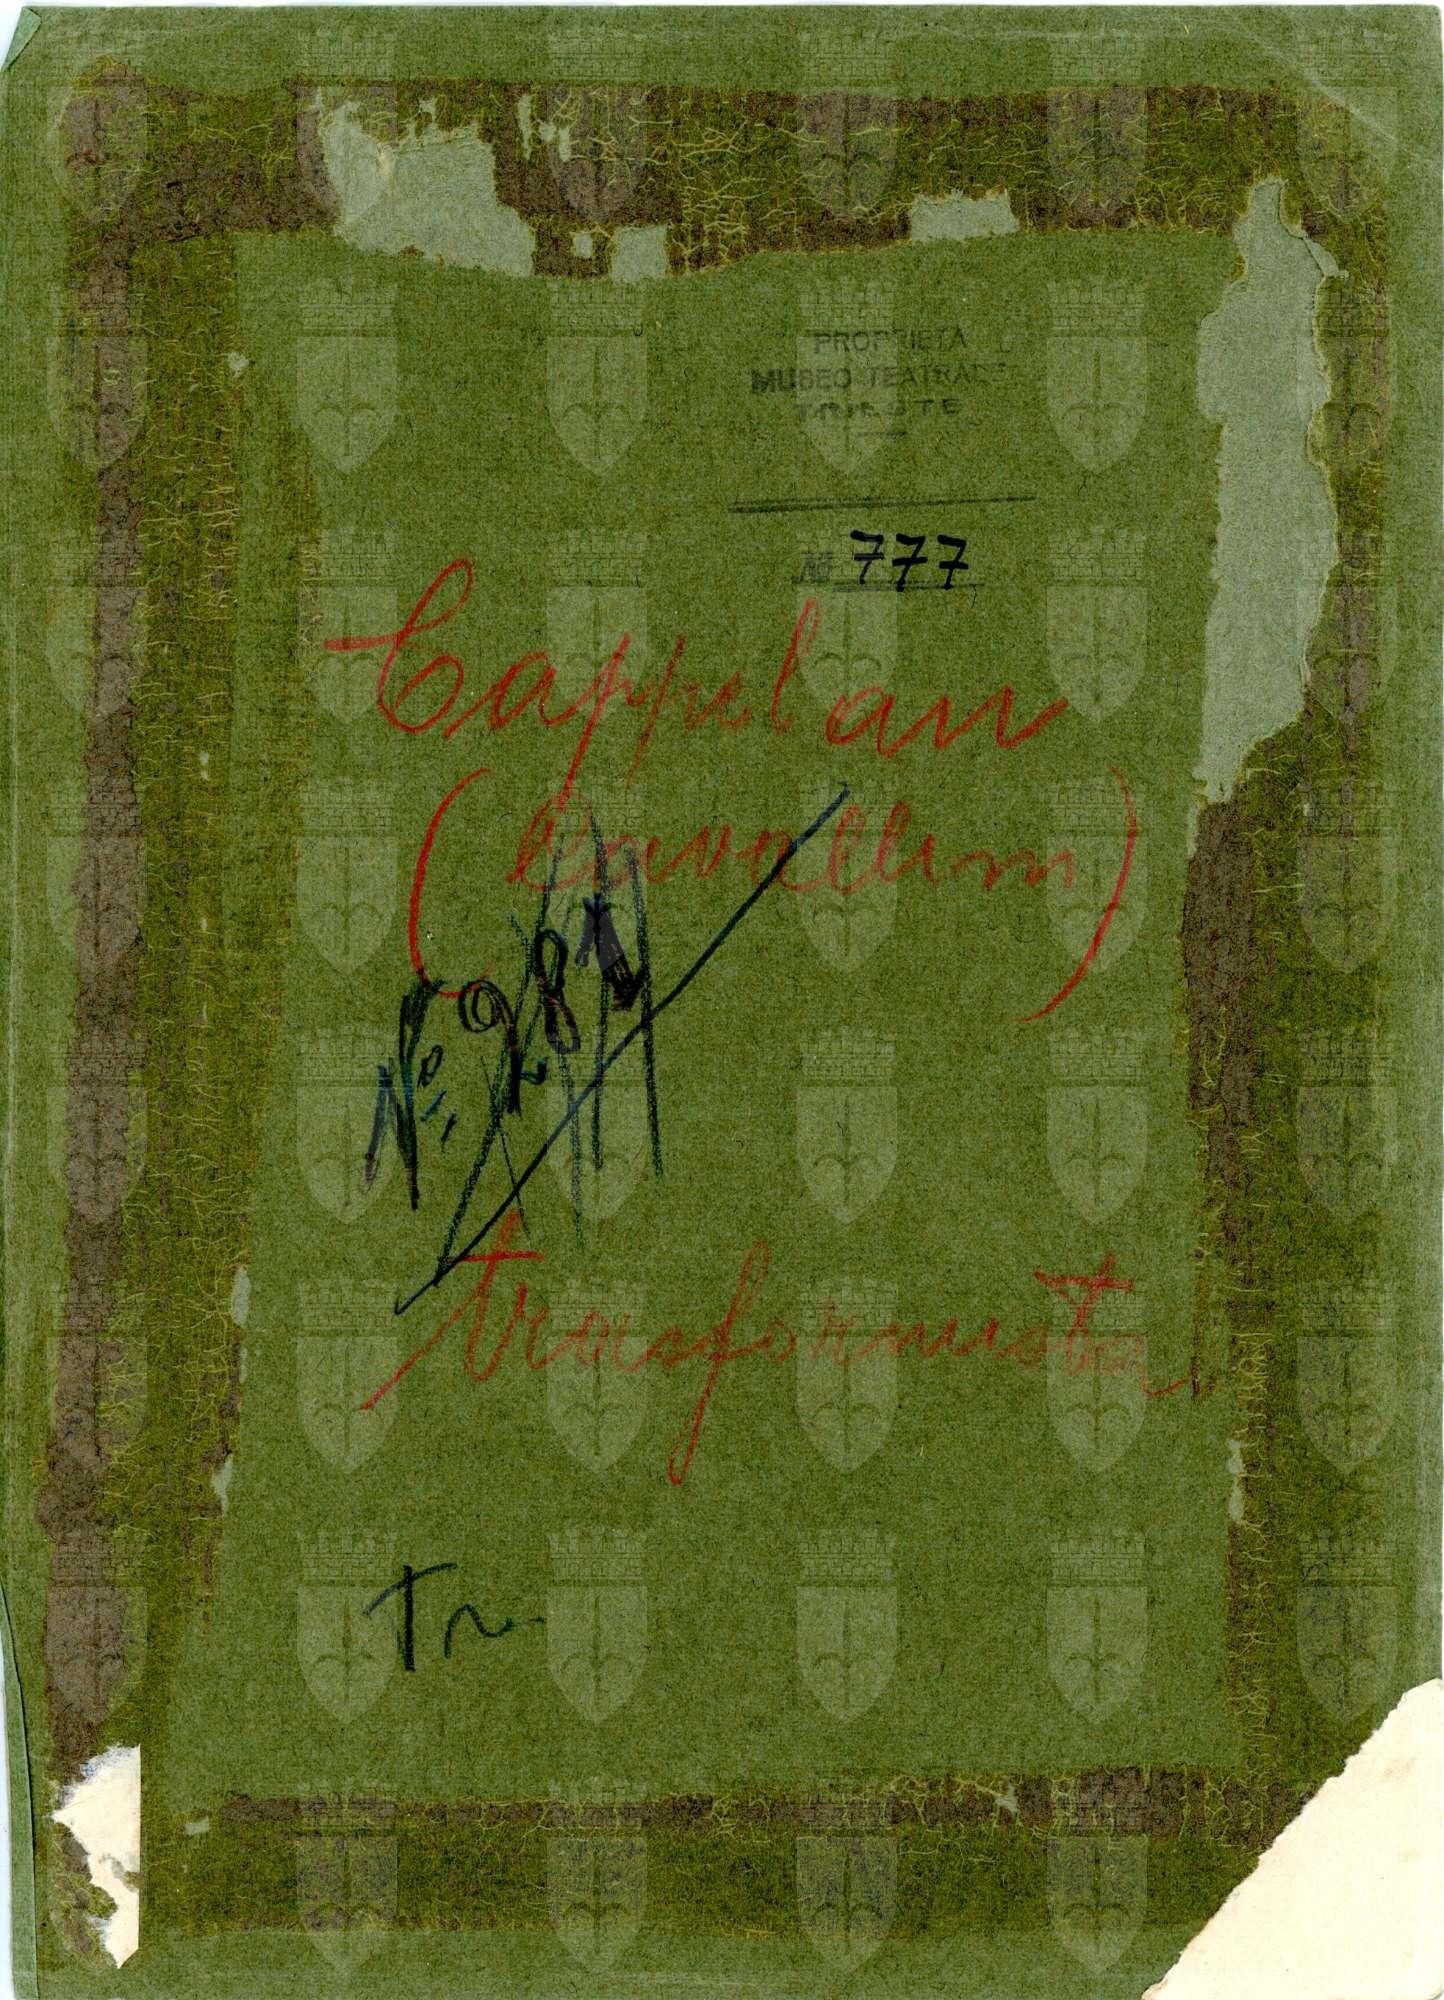 PROPRIETÀ
MUSEO TEATRALE
TRIESTE
No 777
Cappelan
(Cavallini)
No 981
trasformista
Tr.